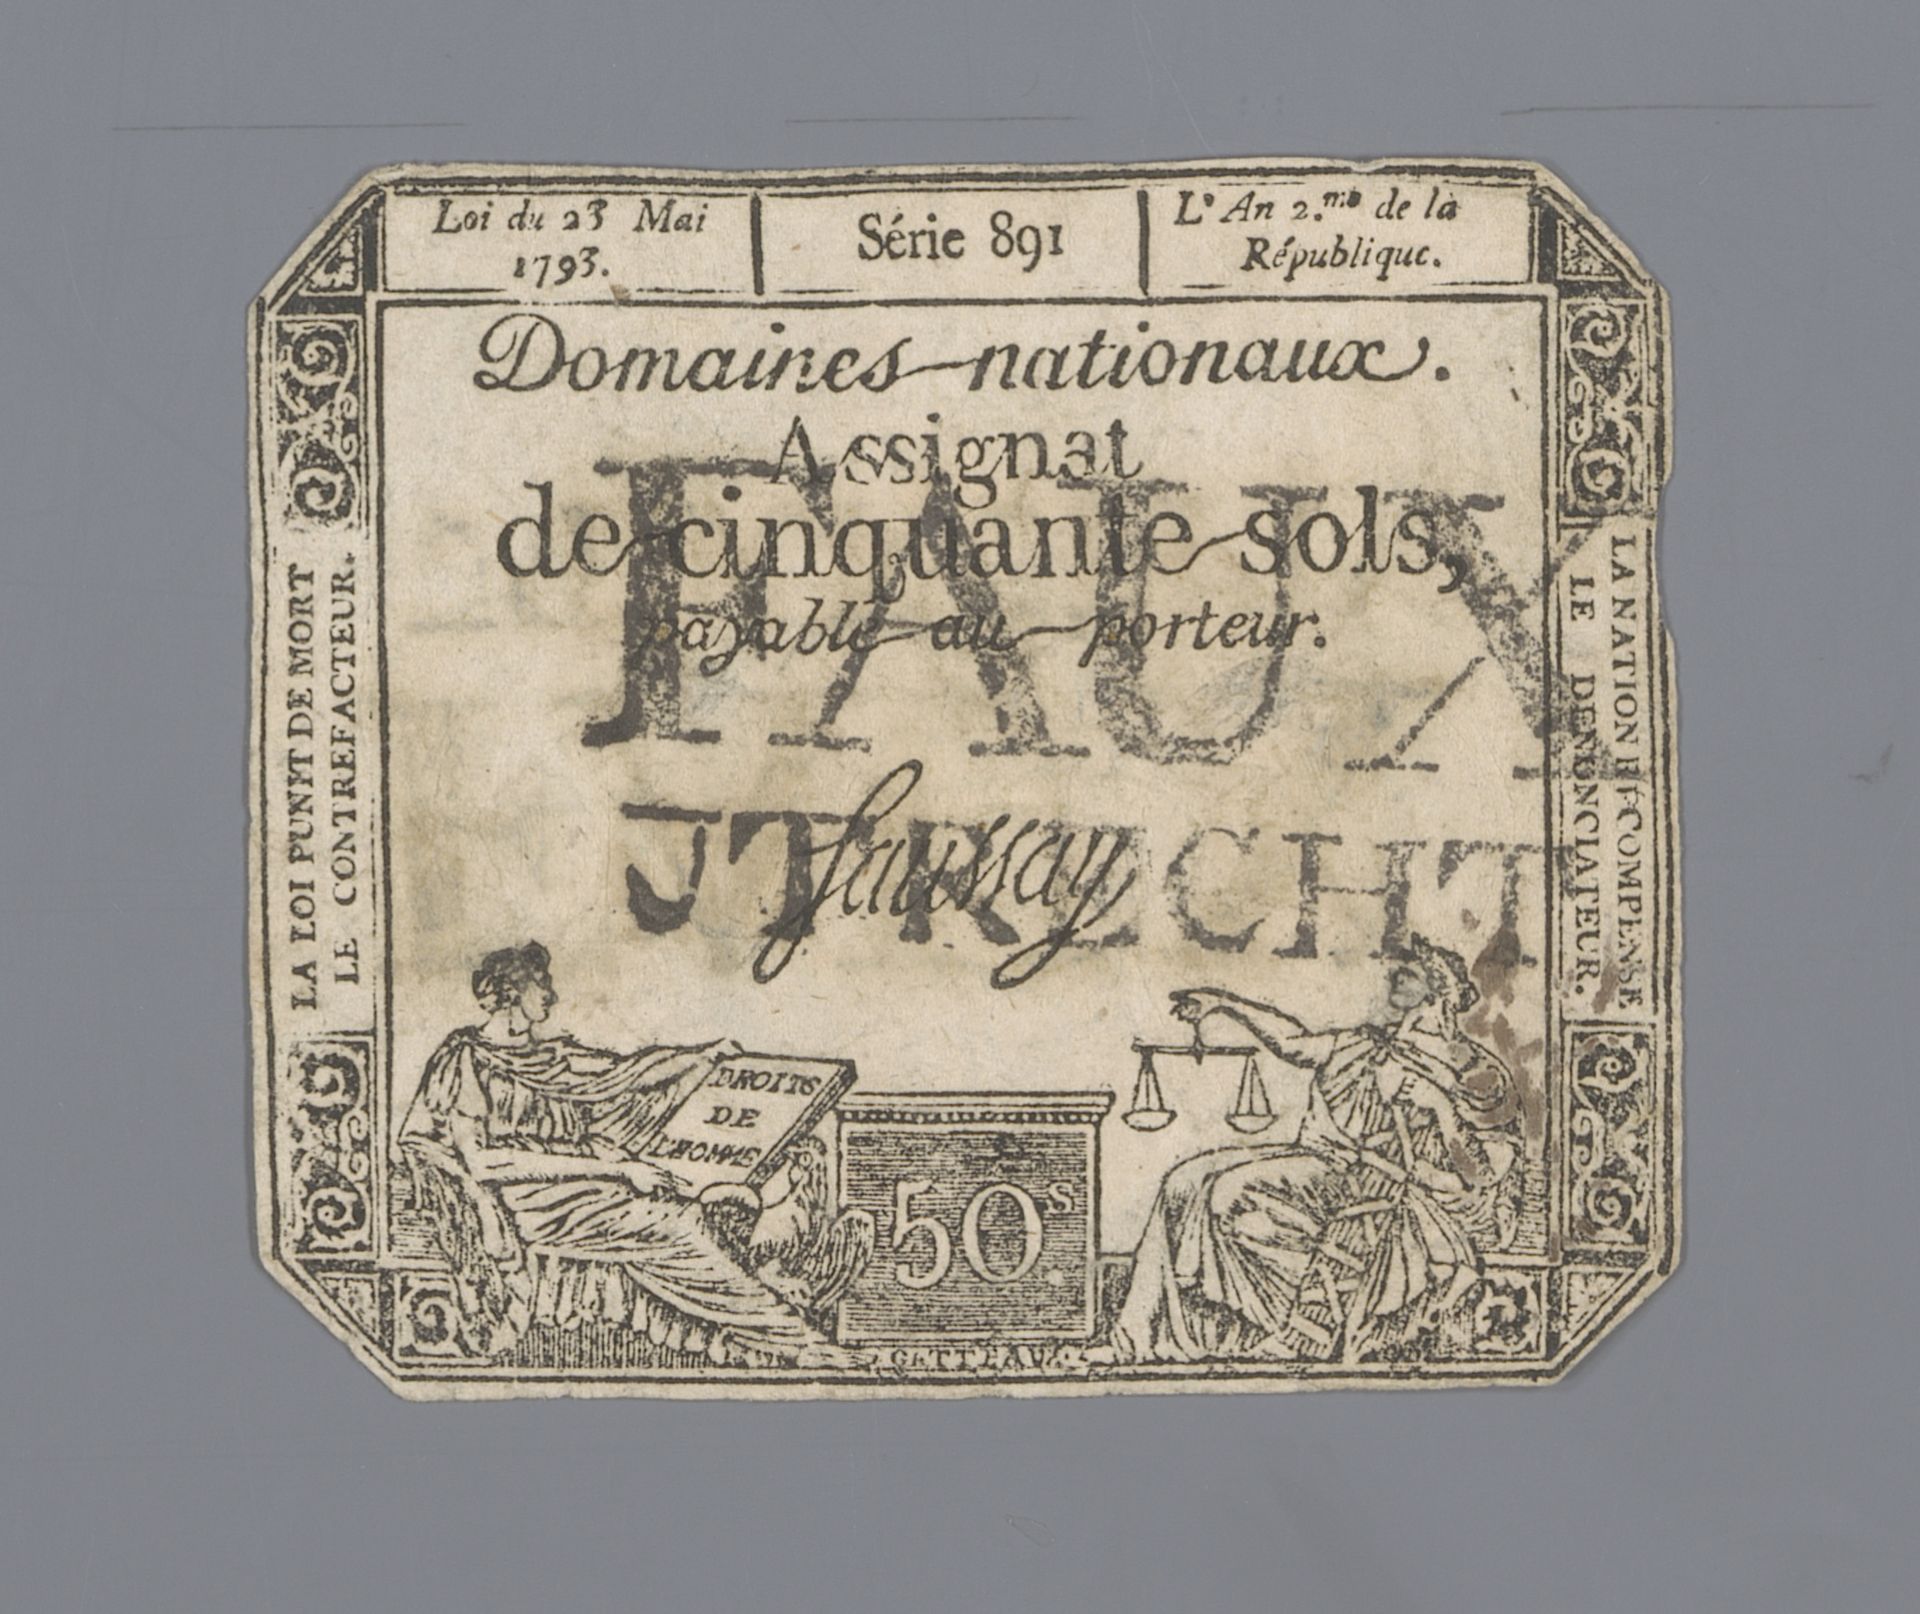 Loi du 23 Mai
1793.
Série 891
L'An 2.me de la
République.
Domaines nationaux.
Assignat
de cinquante sols,
payable au porteur.
FAUX
Saussay
UTRECHT
LA LOI PUNIT DE MORT
LE CONTREFACTEUR.
LA NATION RÉCOMPENSE
LE DENONCIATEUR.
DROITS
DE
L'HOMME
50s.
GATTEAUX